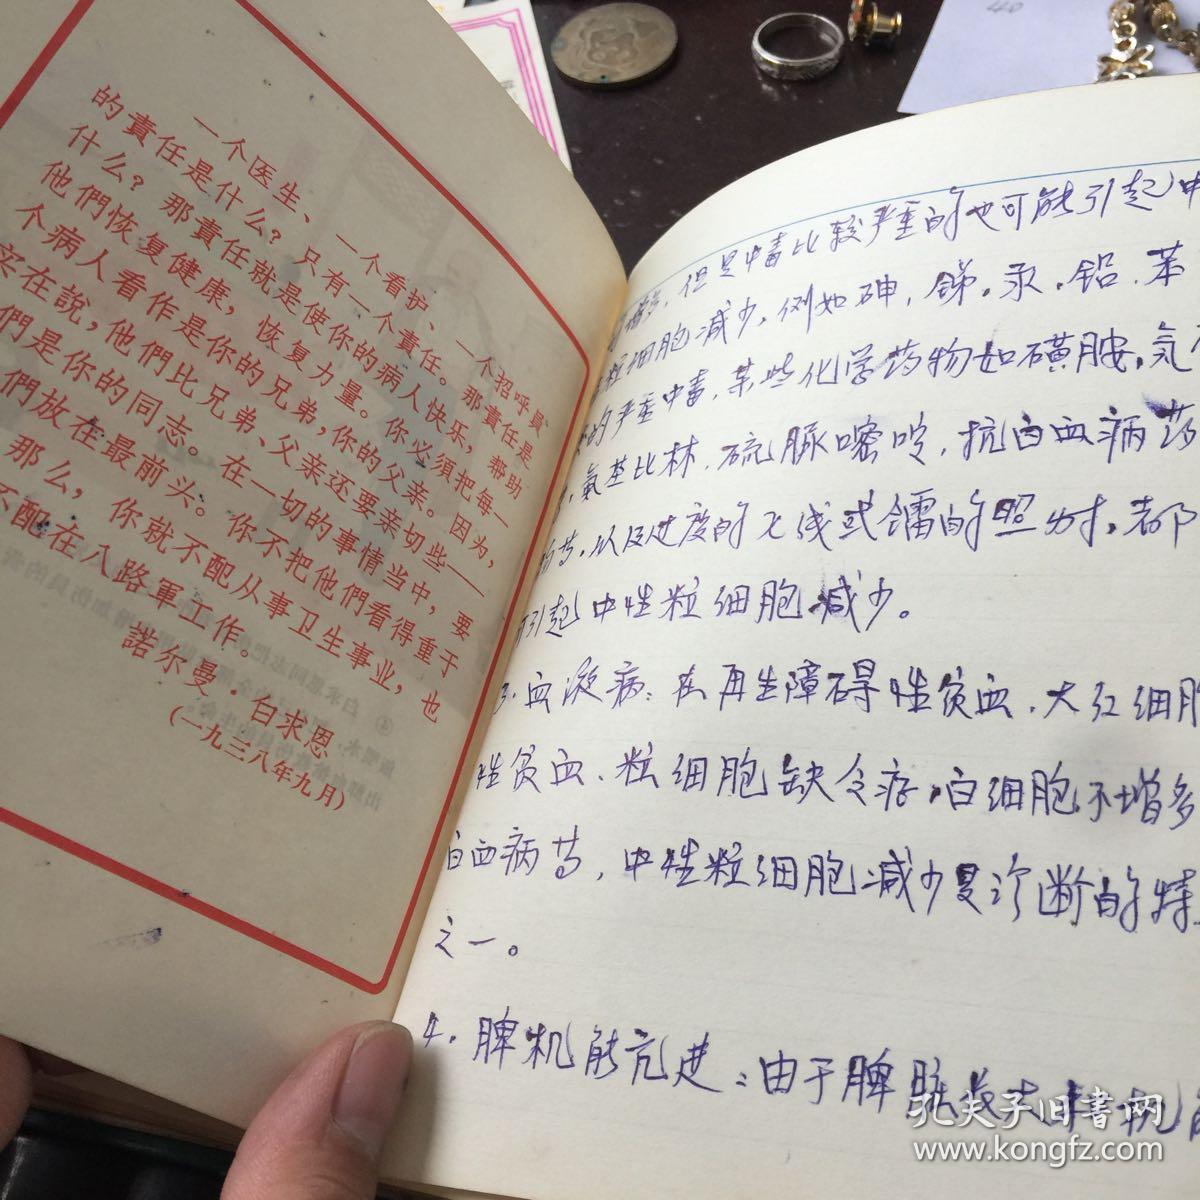 一个医生、一个看护、一个招呼員、
的責任是什么？只有一个責任。那責任是
什么？那責任就是使你的病人快乐，帮助
他們恢复健康，恢复力量。你必須把每一
个病人看作是你的兄弟，你的父亲。因为，
实在說，他們比兄弟、父亲还要亲切些——
們是你的同志。在一切的事情当中，要
們放在最前头。你不把他們看得重于
那么，你就不配从事卫生事业，也
不配在八路軍工作。
諾尔曼·白求恩
（一九三八年九月）
增多，但是中毒比较严重的也可能引起中
粒细胞减少。例如砷，锑。汞。铅．苯
的严重中毒，某些化学药物如磺胺，氮
氨基比林．硫脲嘧啶，抗白血病药
以及过度的X线或镭的照射，都
引起中性粒细胞减少。
3．血液病：在再生障碍性贫血．大红细胞
性贫血、粒细胞缺乏症，白细胞不增多
白血病等，中性粒细胞减少是诊断的特
之一。
4．脾机能亢进：由于脾脏
孔夫子旧书网
www.kongfz.com
40